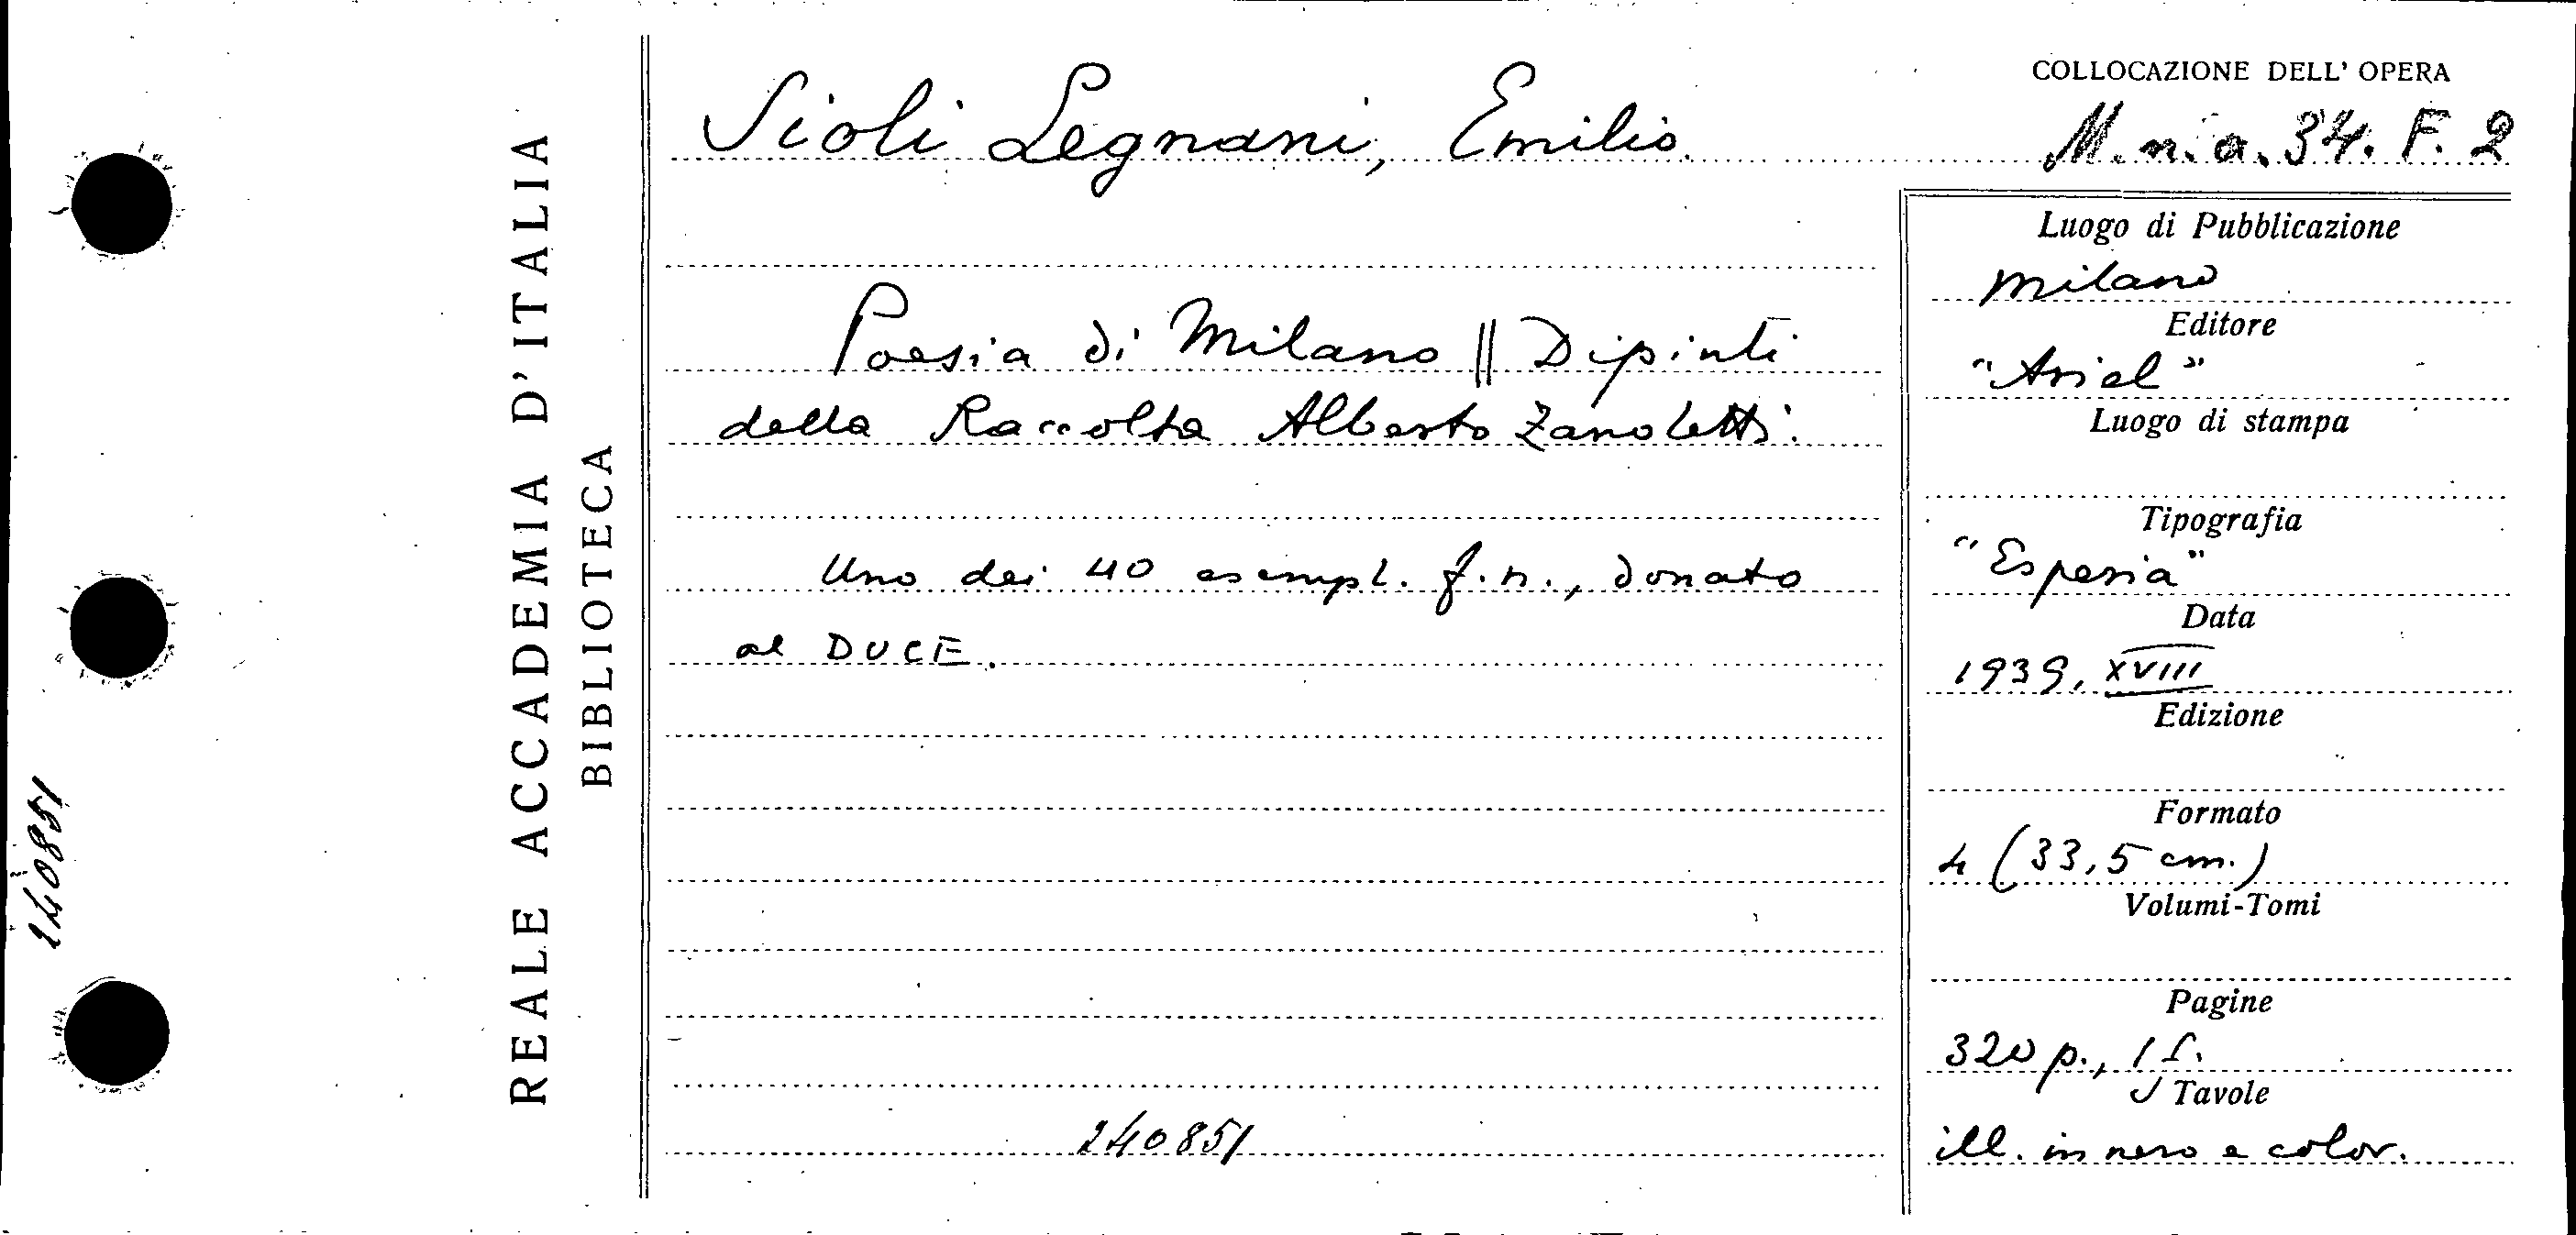 REALE ACCADEMIA D'ITALIA
BIBLIOTECA
240851
Sioli Legnani, Emilio.
Poesia di Milano || Dipinti
della Raccolta Alberto Zanoletti.
Uno dei 40 esempl. f.n., donato
al DUCE.
240851
COLLOCAZIONE DELL' OPERA
M.n.a.34.F.2
Luogo di Pubblicazione
Milano
Editore
"Ariel"
Luogo di stampa
Tipografia
"Esperia"
Data
1939, XVIII
Edizione
Formato
4 (33,5 cm.)
Volumi-Tomi
Pagine
320 p., 1 f.
Tavole
ill. in nero e color.